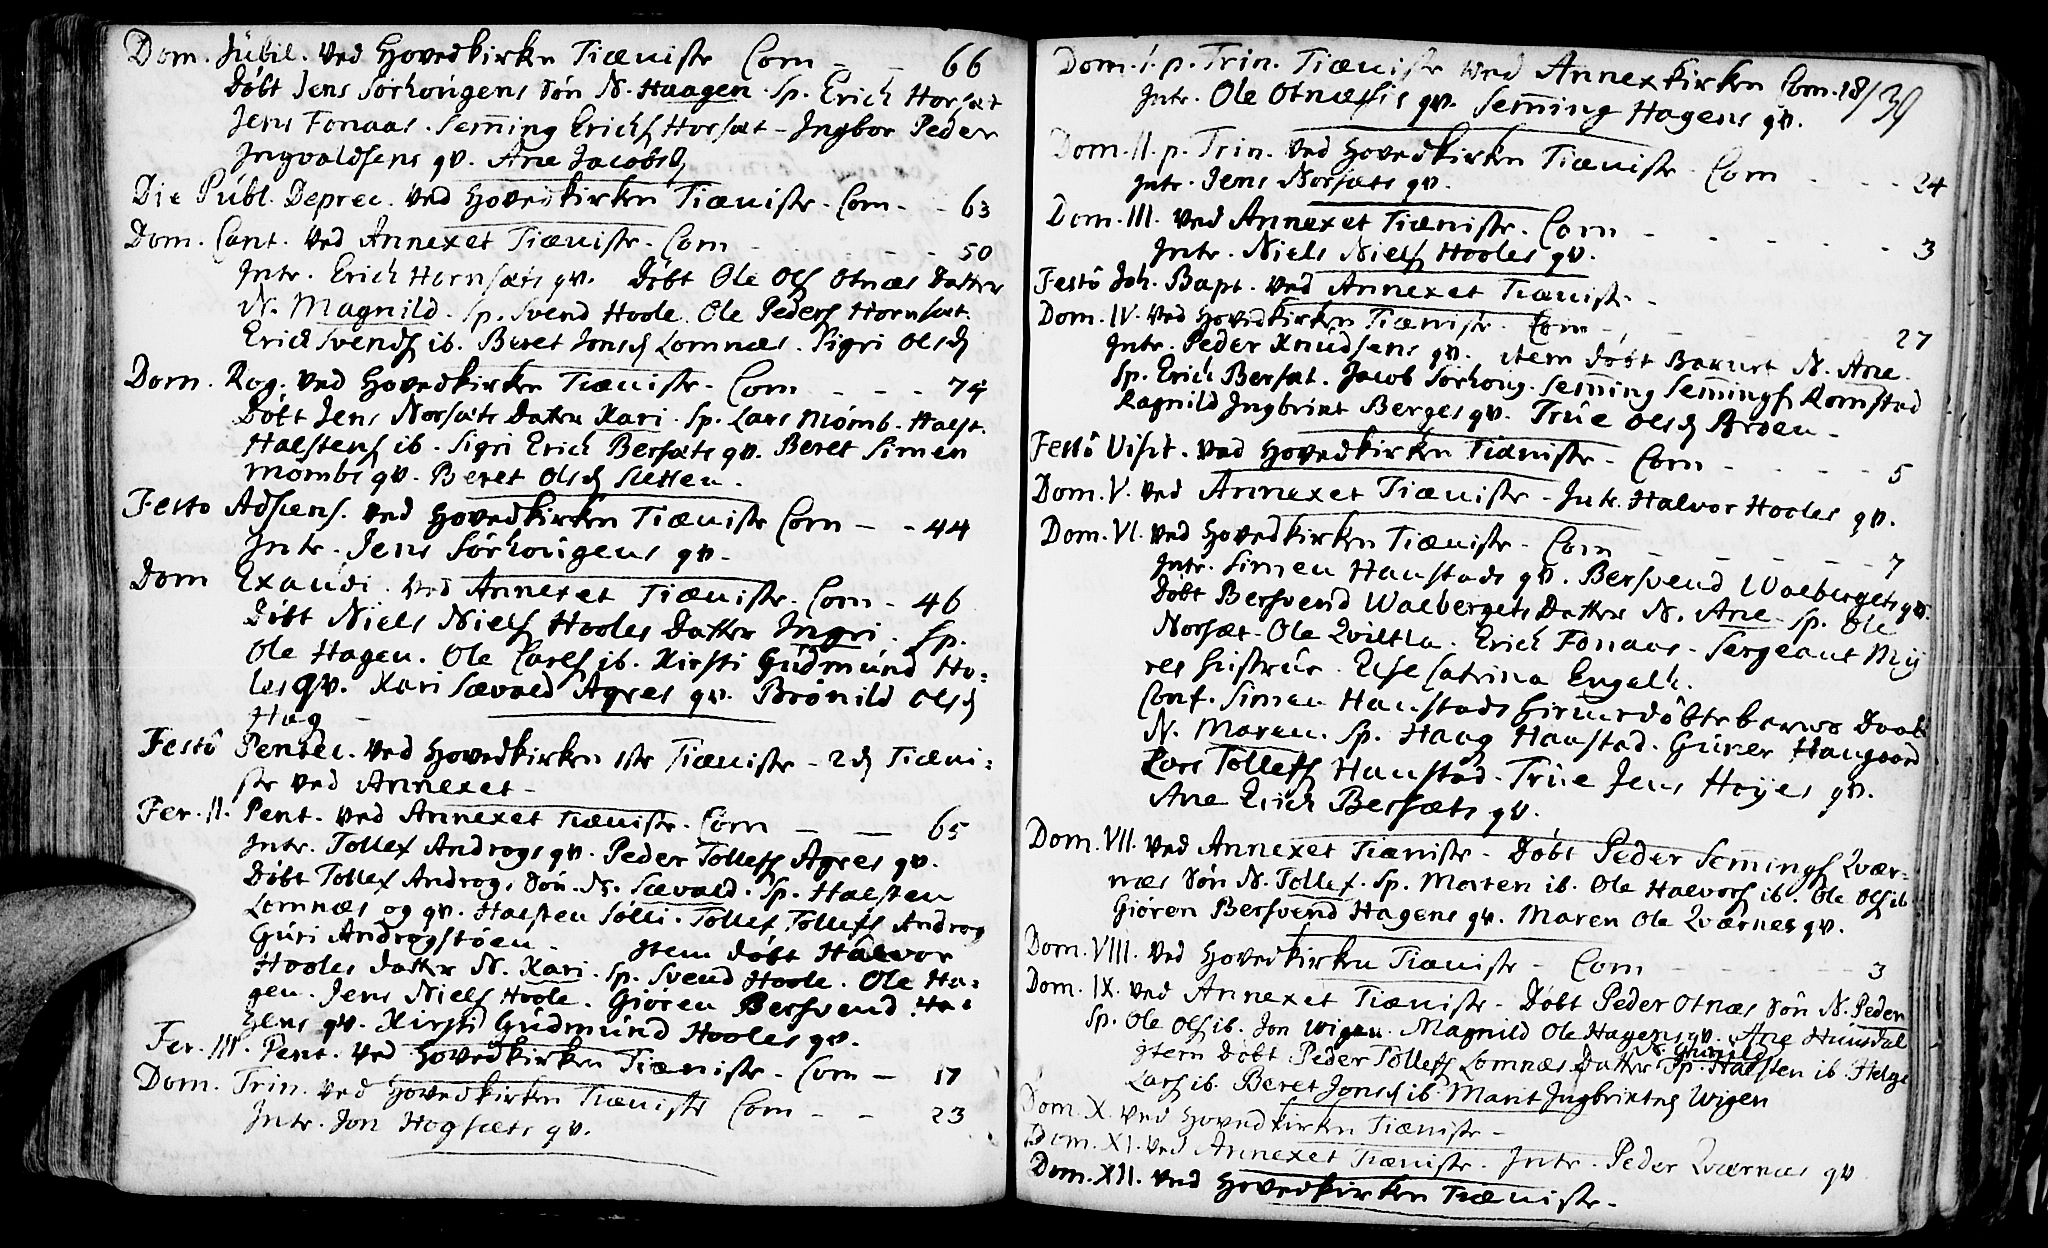 Dom. Jubil. ved Hovedkirken Tiæniste Com - - 66
Døbt Jens Sørhougens Søn N. Haagen. Sp. Erich Horsæt
Jens Fonaas. Semming Erichs Horsæt - Ingbor Peder
Ingvaldsens qv. Ane Jacobsd
Die Publ. Deprec. ved Hovedkirken Tiæniste. Com. - - 63
Dom. Cant. ved Annexet Tiæniste. Com - - - 50
Intr. Erich Hornsæts qv. Døbt Ole Ols Otnæs Datter
N. Magnild. Sp. Svend Hoole. Ole Peders Hornsæt.
Erich Svends ib. Beret Jonsd Lomnæs. Sigri Olsd
Dom. Rog. ved Hovedkirken Tiæniste. Com - - - 74
Døbt Jens Norsæts Datter Kari. Sp. Lars Mømb. Halst.
Halstens ib. Sigri Erich Bersæts qv. Beret Simen
Mømbs qv. Beret Olsd Sletten.
Festo Adscens. ved Hovedkirken Tiæniste Com - - 44
Intr. Jens Sørhougens qv.
Dom Exaudi. ved Annexet Tiæniste. Com - 46
Døbt Niels Niels Hooles Datter Ingri. Sp.
Ole Hagen. Ole Carls ib. Kirsti Gudmund Ho-
les qv. Kari Sævald Agres qv. Brønild Olsd
Hag -
Festo Pentec. ved Hovedkirken 1ste Tiæniste - 2d Tiæni-
ste ved Annexet -
Fer. II. Pent. ved Annexet Tiæniste. Com - - 65
Intr. Tollef Androgs qv. Peder Tollefs Agres qv.
Døbt Tollef Androgs Søn. N. Sævald. Sp. Halsten
Lomnæs og qv. Halsten Solli. Tollef Tollefs Androg
Guri Androgstøen. Item døbt Halvor
Hooles datter N. Kari. Sp. Svend Hoole. Ole Ha-
gen. Jens Niels Hoole. Giøren Bersvend Ha-
gens qv. Kirsti Gudmund Hooles qv.
Fer. III. Pent. ved Hovedkirken Tiæniste. Com - 17
Dom. Trin. ved Hovedkirken Tiæniste Com - - 23
Intr. Jon Hogsæts qv.
Dom. I. p. Trin. Tiæniste ved Annexkirken Com. 18/39
Intr. Ole Otnæssis qv. Semming Hagens qv.
Dom. II. p. Trin. ved Hovedkirken Tiæniste. Com - - - 24
Intr. Jens Norsæts qv.
Dom. III. ved Annexet Tiæniste. Com - - - - - 3
Intr. Niels Niels Hooles qv.
Festo Joh. Bapt. ved Annexet Tiæniste. -
Dom. IV. ved Hovedkirken Tiæniste. Com - - - - 27
Intr. Peder Knudsens qv. item døbt N. Ane.
Sp. Erich Bersæt. Jacob Sørhoug. Semming Semmings Romstad
Ragnild Ingbrict Berges qv. True Olsd
Festo Visit. ved Hovedkirken Tiæniste - Com - - - - 5
Dom. V. ved Annexet Tiæniste - Intr. Halvor Hooles qv.
Dom. VI. ved Hovedkirken Tiæniste - Com - - - - 7
Intr. Simen Haustads qv. Bersvend Wolbergets qv.
Døbt Bersvend Wolbergets Datter N. Ane - Sp. Ole
Norsæt - Ole Qviltla. Erich Fonaas - Sergeant My
res Hustrue. Else Catrina Engelh.
Conf. Simen Haustads Hiemedøbte barns Daab
N. Maren. Sp. Haag Haustad. Guner Haugaard
Lars Tollefs Haustad - True Jens Høyes qv.
Ane Erich Bersæts qv.
Dom. VII. ved Annexet Tiæniste - Døbt Peder Semmings Qvær-
næs Søn N. Tollef. Sp. Morten ib. Ole Halvors ib. Ole Ols ib
Giøren Bersvend Hagens qv. Maren Ole Qværnes qv.
Dom. VIII. ved Hovedkirken Tiæniste - Com - - - - 3
Dom. IX. ved Annexet Tiæniste - Døbt Peder Otnæs Søn N. Peder
Sp. Ole Ols ib. Jon Wigen. Magnild Ole Hagens qv. Ane Hunsdal
N. Gunnild
Item Døbt Peder Tollefs Lomnæs Datter Sp. Halsten ib. Helge
Lars ib. Beret Jonsd ib. Marit Ingbrictsd Wigen
Dom. X. ved Hovedkirken Tiæniste -
Dom. XI. ved Annexet Tiæniste. Intr. Peder Qværnæs qv
Dom. XII. ved Hovedkirken Tiæniste -